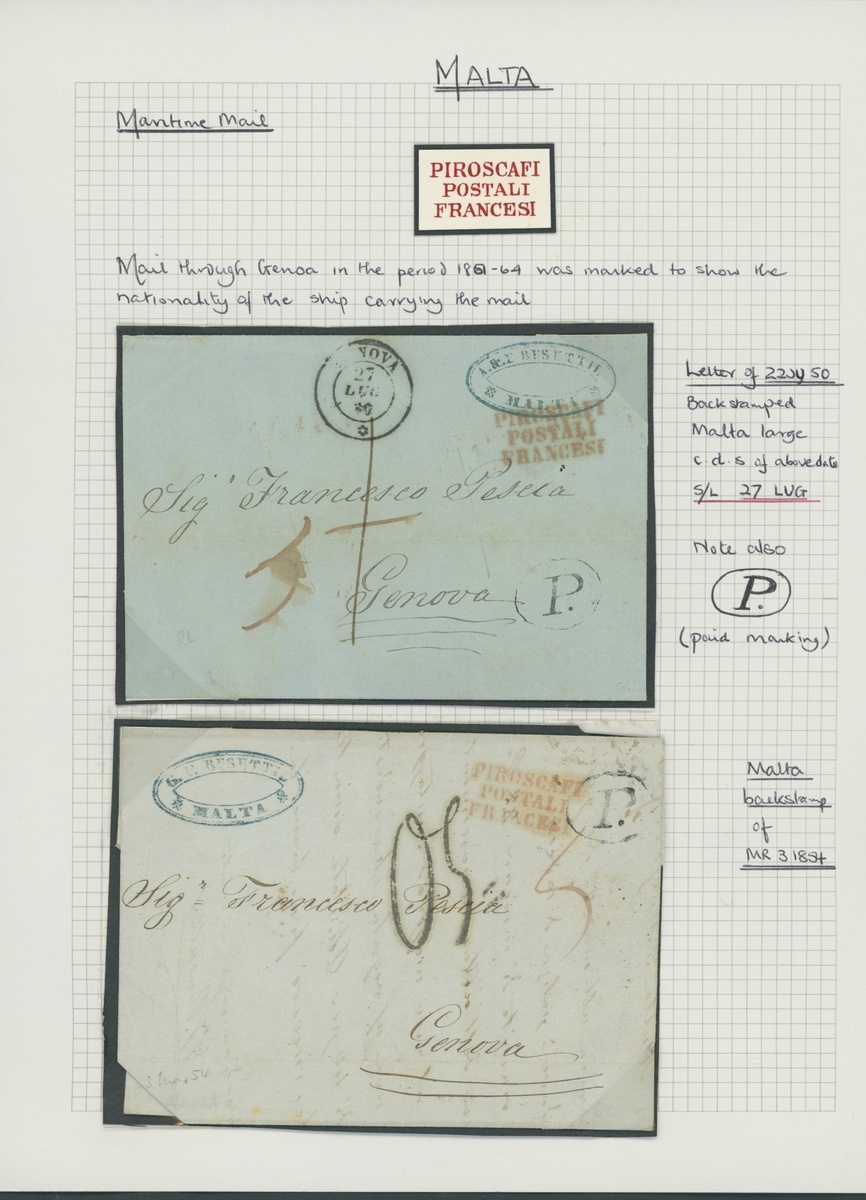 MALTA
Maritime Mail
PIROSCAFI
POSTALI
FRANCESI
Mail through Genoa in the period 1851-64 was marked to show the
nationality of the ship carrying the mail
NOVA
27
LUG
A. & F. BESUTTI
MALTA
PIROSCAFI
POSTALI
FRANCESI
Sigr Francesco Pescia
Genova
P.
Letter of 22 Jy 50
Backstamped
Malta large
c.d.s of above date
S/L 27 LUG
Note also
P.
(paid marking)
BESUTTI
MALTA
PIROSCAFI
POSTALI
FRANCESI
P.
Sigr Francesco Pescia
Genova
Malta
backstamp
of
MR 3 1854